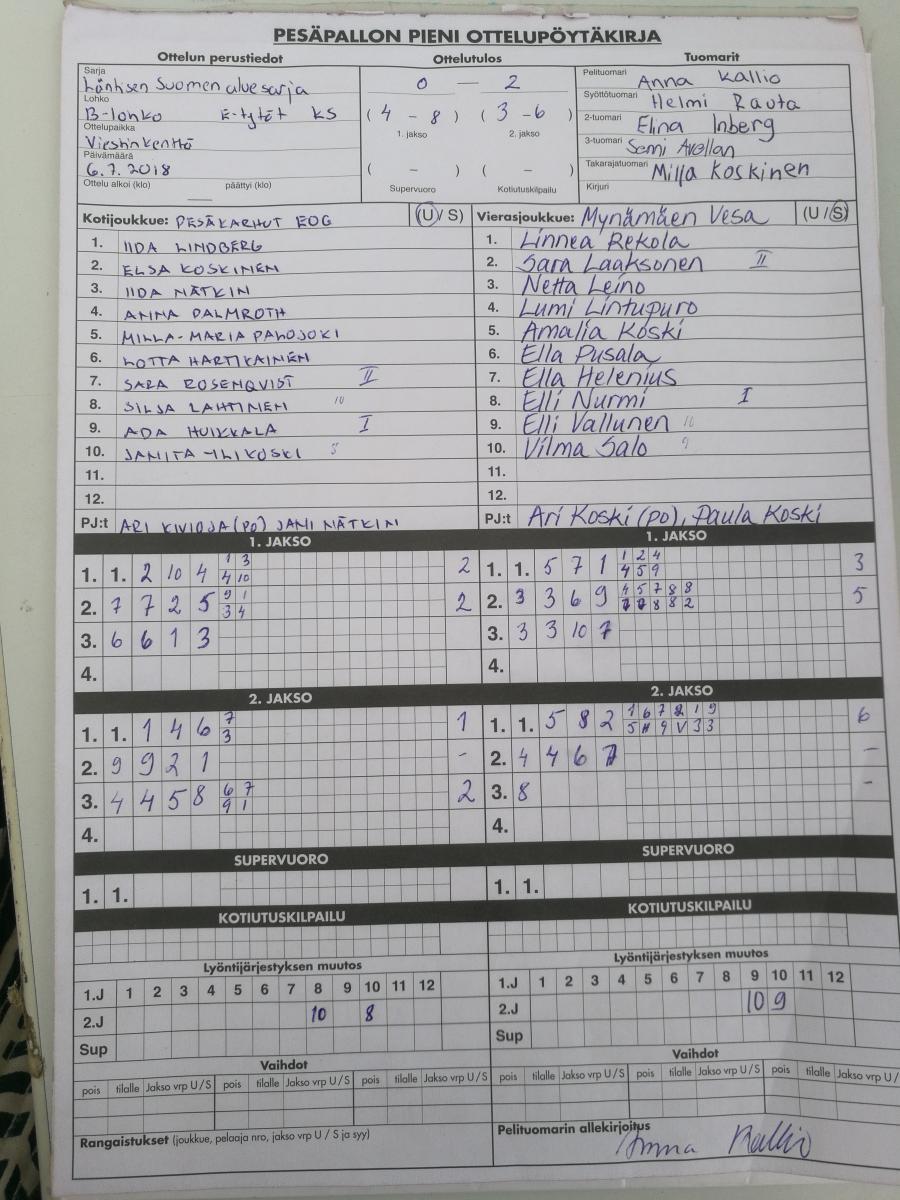 PESÄPALLON PIENI OTTELUPÖYTÄKIRJA
Ottelun perustiedot
Sarja
Läntisen Suomen aluesarja
Lohko
B-lohko E-tytöt KS
Ottelupaikka
Viestinkenttä
Päivämäärä
6.7.2018
Ottelu alkoi (klo) päättyi (klo)
Ottelutulos
0 — 2
( 4 - 8 ) ( 3 - 6 )
1. jakso 2. jakso
( - ) ( - )
Supervuoro Kotiutuskilpailu
Tuomarit
Pelituomari Anna Kallio
Syöttötuomari Helmi Rauta
2-tuomari Elina Inberg
3-tuomari Semi Avellan
Takarajatuomari Milja Koskinen
Kirjuri
Kotijoukkue: PESÄKARHUT EOG (U/S)
1. IIDA LINDBERG
2. ELSA KOSKINEN
3. IIDA NÄTKIN
4. ANNA PALMROTH
5. MILLA-MARIA PALOJOKI
6. LOTTA HARTIKAINEN
7. SARA ROSENQVIST II
8. SILJA LAHTINEN 10
9. ADA HUIKKALA I
10. JANITA YLIKOSKI 8
11.
12.
PJ:t ARI KIVIOJA (PO) JANI NÄTKIN
Vierasjoukkue: Mynämäen Vesa (U/S)
1. Linnea Rekola
2. Sara Laaksonen II
3. Netta Leino
4. Lumi Lintupuro
5. Amalia Koski
6. Ella Pusala
7. Ella Helenius
8. Elli Nurmi I
9. Elli Vallunen 10
10. Vilma Salo 9
11.
12.
PJ:t Ari Koski (PO), Paula Koski
1. JAKSO
1 3
1. 1. 2 10 4 2
4 10
9 1
2. 7 7 2 5 2
3 4
3. 6 6 1 3
4.
1. JAKSO
1 2 4
1. 1. 5 7 1 3
4 5 9
4 5 7 8 8
2. 3 3 6 9 5
7 7 8 8 2
3. 3 3 10 7
4.
2. JAKSO
7
1. 1. 1 4 6 1
3
2. 9 9 2 1 -
6 7
3. 4 4 5 8 2
9 1
4.
2. JAKSO
1 6 7 2 1 9
1. 1. 5 8 2 6
5 9 V 3 3
2. 4 4 6 7 -
3. 8 -
4.
SUPERVUORO
1. 1.
SUPERVUORO
1. 1.
KOTIUTUSKILPAILU
KOTIUTUSKILPAILU
Lyöntijärjestyksen muutos
1.J 1 2 3 4 5 6 7 8 9 10 11 12
2.J 10 8
Sup
Lyöntijärjestyksen muutos
1.J 1 2 3 4 5 6 7 8 9 10 11 12
2.J 10 9
Sup
Vaihdot
pois tilalle Jakso vrp U/S pois tilalle Jakso vrp U/S pois tilalle Jakso vrp U/S
Vaihdot
pois tilalle Jakso vrp U/S pois tilalle Jakso vrp U/S pois tilalle Jakso vrp U/
Rangaistukset (joukkue, pelaaja nro, jakso vrp U / S ja syy)
Pelituomarin allekirjoitus
Anna Kallio